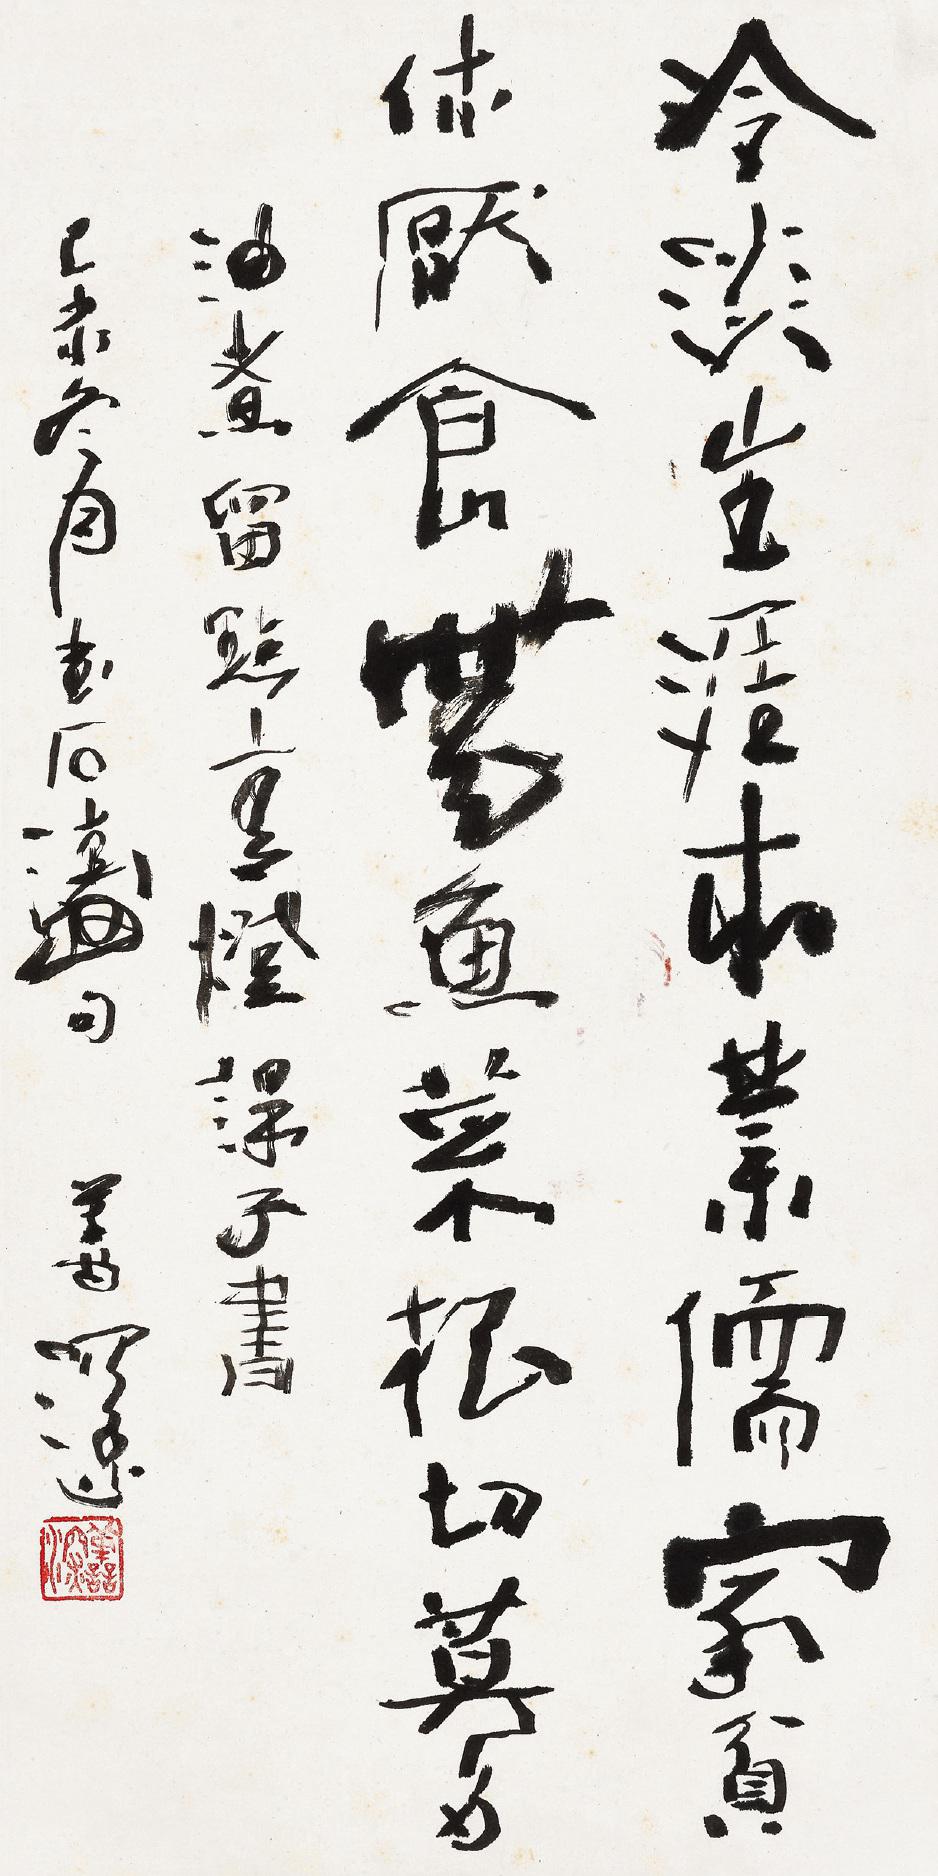 冷淡生涯本業儒家貧
休厭食無魚菜根切莫多
油煮留點青燈課子書
己未冬月書石句